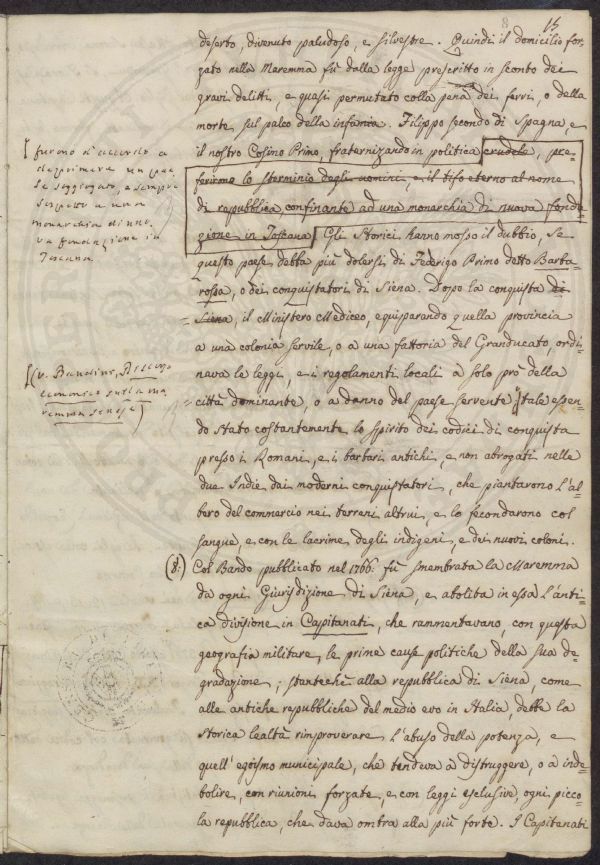 8 15
deserto, divenuto paludoso, e silvestre. Quindi il domicilio for-
zato nella Maremma fù dalla legge prescritto in sconto dei
gravi delitti, e quasi permutato colla pena dei ferri, o della
morte sul palco della infamia. Filippo secondo di Spagna, e
il nostro Cosimo Primo, fraternizando in politica crudele, pre-
ferirono lo sterminio degli uomini, e il tifo eterno al nome
di repubblica, confinante ad una monarchia di nuova fonda-
zione in Toscana. Gli Storici hanno mosso il dubbio, se
questo paese debba più dolersi di Federigo Primo detto Barba-
rossa, o dei conquistatori di Siena. Dopo la conquista di
Siena, il Ministero Mediceo, equiparando quella provincia
a una colonia servile, o a una fattoria del Granducato, ordi-
nava le leggi, e i regolamenti locali a solo prò della
città dominante, o a danno del paese servente, tale essen-
do stato costantemente lo spirito dei codici di conquista
presso i Romani, e i barbari antichi, e non abrogati nelle
due Indie dai moderni conquistatori, che piantarono l'al-
bero del commercio nei terreni altrui, e lo fecondarono col
sangue, e con le lacrime degli indigeni, e dei nuovi coloni.
(8.) Col Bando pubblicato nel 1766. fù smembrata la Maremma
da ogni Giurisdizione di Siena, e abolita in essa l'anti-
ca divisione in Capitanati, che rammentavano, con questa
geografia militare, le prime cause politiche della sua de-
gradazione; stanteché alla repubblica di Siena, come
alle antiche repubbliche del medio evo in Italia, debbe la
storica lealtà rimproverare l'abuso della potenza, e
quell'egoismo municipale, che tendeva a distruggere, o a inde-
bolire, con riunioni forzate, e con leggi esclusive ogni picco-
la repubblica, che dava ombra alla più forte. I Capitanati
furono d'accordo a
deprimere un pae-
se soggiogato, e sempre
sospetto a una
monarchia di nuo-
va fondazione in
Toscana.
(v. Bandini, Discorso
economico sulla ma-
remma senese)